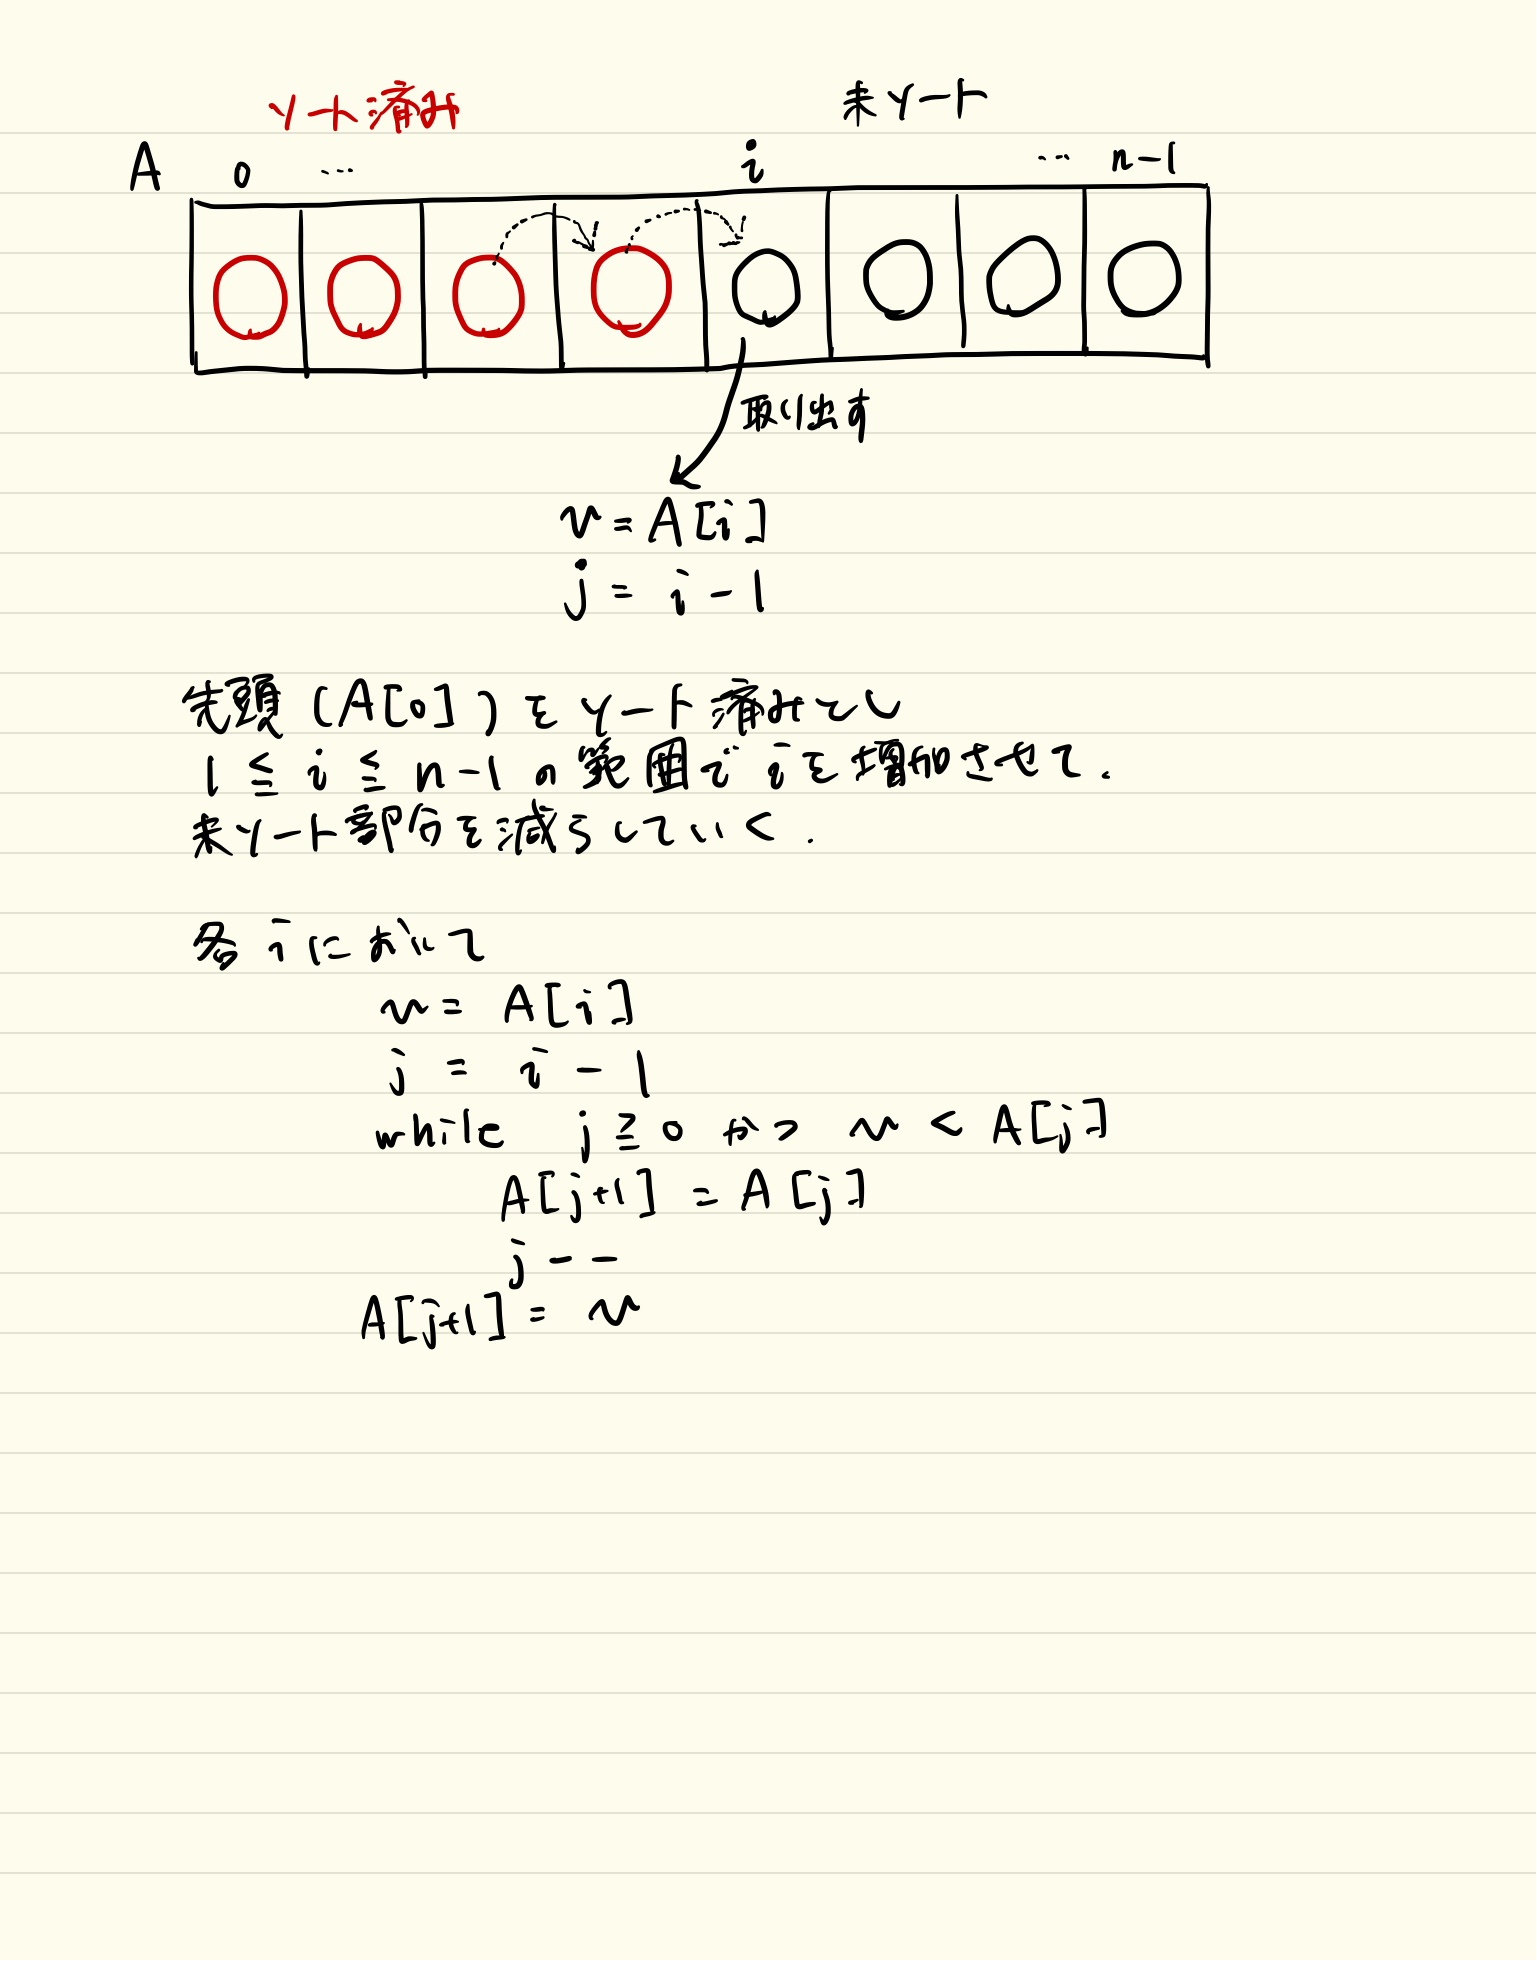 ソート済み 未ソート
A 0 … i … n-1
取り出す
v = A[i]
j = i - 1
先頭 (A[0]) をソート済みとし
1 ≦ i ≦ n-1 の範囲で i を増加させて.
未ソート部分を減らしていく.
各 i において
v = A[i]
j = i - 1
while j ≧ 0 かつ v < A[j]
A[j+1] = A[j]
j--
A[j+1] = v